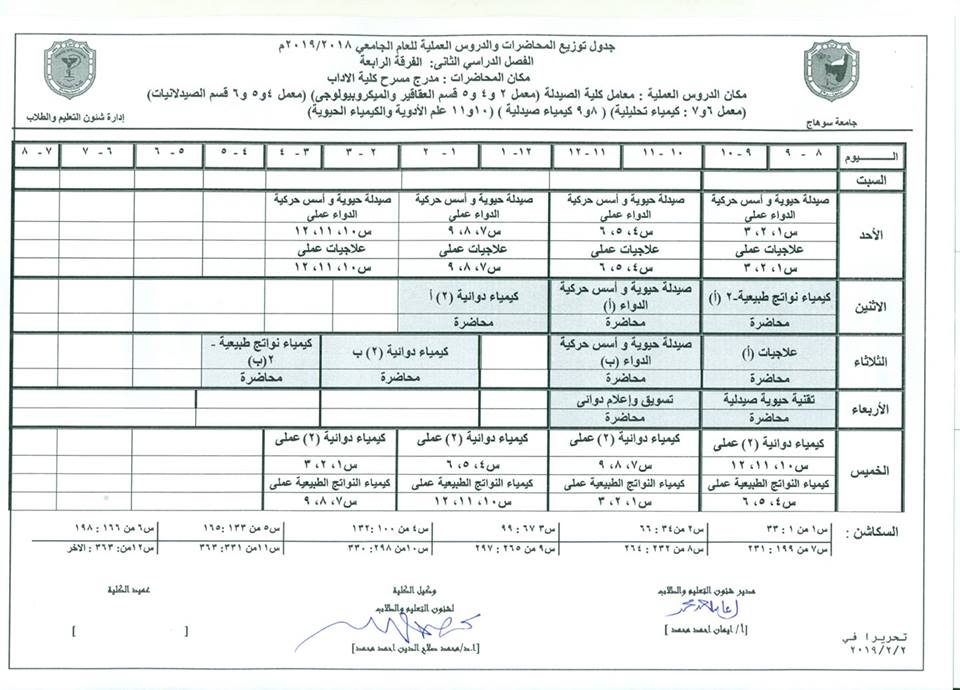 جدول توزيع المحاضرات والدروس العملية للعام الجامعي ٢٠١٩/٢٠١٨م
الفصل الدراسي الثانى: الفرقة الرابعة
مكان المحاضرات : مدرج مسرح كلية الاداب
مكان الدروس العملية : معامل كلية الصيدلة (معمل ٢ و٤ و٥ قسم العقاقير والميكروبيولوجى) (معمل ٤و٥ و٦ قسم الصيدلانيات)
(معمل ٦و٧ : كيمياء تحليلية) (٨و٩ كيمياء صيدلية ) (١٠و١١ علم الأدوية والكيمياء الحيوية)
جامعة سوهاج
إدارة شئون التعليم والطلاب
اليـــــوم ٨ - ٩ ٩ - ١٠ ١٠ - ١١ ١١ - ١٢ ١٢ - ١ ١ - ٢ ٢ - ٣ ٣ - ٤ ٤ - ٥ ٥ - ٦ ٦ - ٧ ٧ - ٨
السبت
الأحد
صيدلة حيوية و أسس حركية الدواء عملى صيدلة حيوية و أسس حركية الدواء عملى صيدلة حيوية و أسس حركية الدواء عملى صيدلة حيوية و أسس حركية الدواء عملى
س١، ٢، ٣ س٤، ٥، ٦ س٧، ٨، ٩ س١٠، ١١، ١٢
علاجيات عملى علاجيات عملى علاجيات عملى علاجيات عملى
س١، ٢، ٣ س٤، ٥، ٦ س٧، ٨، ٩ س١٠، ١١، ١٢
الاثنين
كيمياء نواتج طبيعية-٢ (أ) صيدلة حيوية و أسس حركية الدواء (أ) كيمياء دوائية (٢) أ
محاضرة محاضرة محاضرة
الثلاثاء
علاجيات (أ) صيدلة حيوية و أسس حركية الدواء (ب) كيمياء دوائية (٢) ب كيمياء نواتج طبيعية - ٢(ب)
محاضرة محاضرة محاضرة محاضرة
الأربعاء
تقنية حيوية صيدلية تسويق وإعلام دوائى
محاضرة محاضرة
الخميس
كيمياء دوائية (٢) عملى كيمياء دوائية (٢) عملى كيمياء دوائية (٢) عملى كيمياء دوائية (٢) عملى
س١٠، ١١، ١٢ س٧، ٨، ٩ س٤، ٥، ٦ س١، ٢، ٣
كيمياء النواتج الطبيعية عملى كيمياء النواتج الطبيعية عملى كيمياء النواتج الطبيعية عملى كيمياء النواتج الطبيعية عملى
س٤، ٥، ٦ س١، ٢، ٣ س١٠، ١١، ١٢ س٧، ٨، ٩
السكاشن :
س١ من ١ : ٣٣ س٢ من ٣٤ : ٦٦ س٣ ٦٧ : ٩٩ س٤ من ١٠٠ :١٣٢ س٥ من ١٣٣ :١٦٥ س٦ من ١٦٦ : ١٩٨
س٧ من ١٩٩ : ٢٣١ س٨ من ٢٣٢ : ٢٦٤ س٩ من ٢٦٥ : ٢٩٧ س١٠من ٢٩٨: ٣٣٠ س١١من ٣٣١: ٣٦٣ س١٢من: ٣٦٣: الآخر
مدير شئون التعليم والطلاب
[أ/ ايمان احمد محمد ]
وكيل الكلية
لشئون التعليم والطلاب
[ا.د/محمد صلاح الدين احمد محمد]
عميد الكلية
[ ]
تحريرا في
٢٠١٩/٢/٢